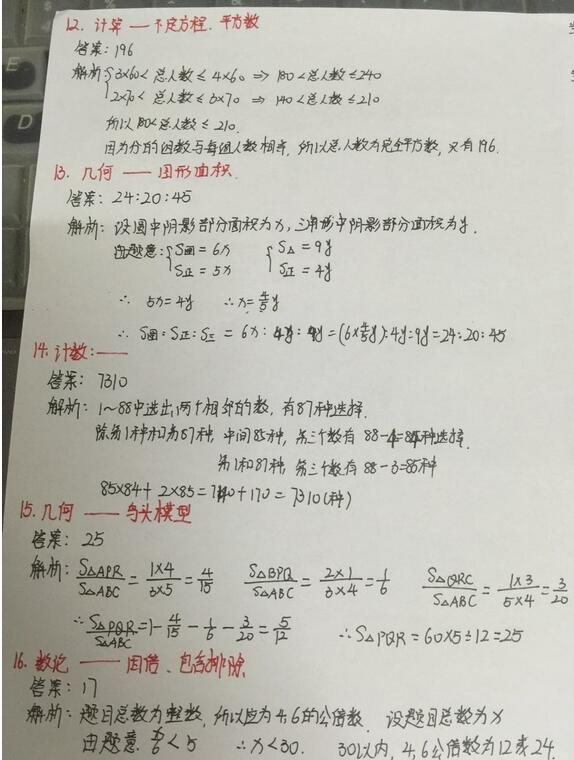 12. 计算 —— 不定方程、平方数
答案: 196
解析: 3×60< 总人数 ≤ 4×60 ⇒ 180<总人数≤240
2×70< 总人数 ≤ 3×70 ⇒ 140<总人数≤210
所以180<总人数≤210.
因为分的组数与每组人数相等, 所以总人数为完全平方数, 只有196.
13. 几何 —— 图形面积
答案: 24:20:45
解析: 设圆中阴影部分面积为x, 三角形中阴影部分面积为y.
由题意: S圆=6x S△=9y
S正=5x S正=4y
∴ 5x=4y ∴x=4/5y
∴ S圆:S正:S三 = 6x:4y:9y=(6×4/5y):4y:9y=24:20:45
14. 计数: ——
答案: 7310
解析: 1~88中选出两个相邻的数, 有87种选择.
除第1种和第87种, 中间85种, 第三个数有 88-4=84种选择.
第1和87种, 第三个数有 88-3=85种
85×84+2×85=7140+170=7310(种)
15. 几何 —— 鸟头模型
答案: 25
解析: S△APR/S△ABC=1×4/3×5=4/15 S△BPQ/S△ABC=2×1/3×4=1/6 S△QRC/S△ABC=1×3/5×4=3/20
∴ S△PQR/S△ABC=1-4/15-1/6-3/20=5/12 ∴S△PQR=60×5÷12=25
16. 数论 —— 因倍、包含排除
答案: 17
解析: 题目总数为整数, 所以应为4,6的公倍数. 设题目总数为x
由题意 x/6<5 ∴x<30. 30以内, 4,6公倍数为12或24.
E
D